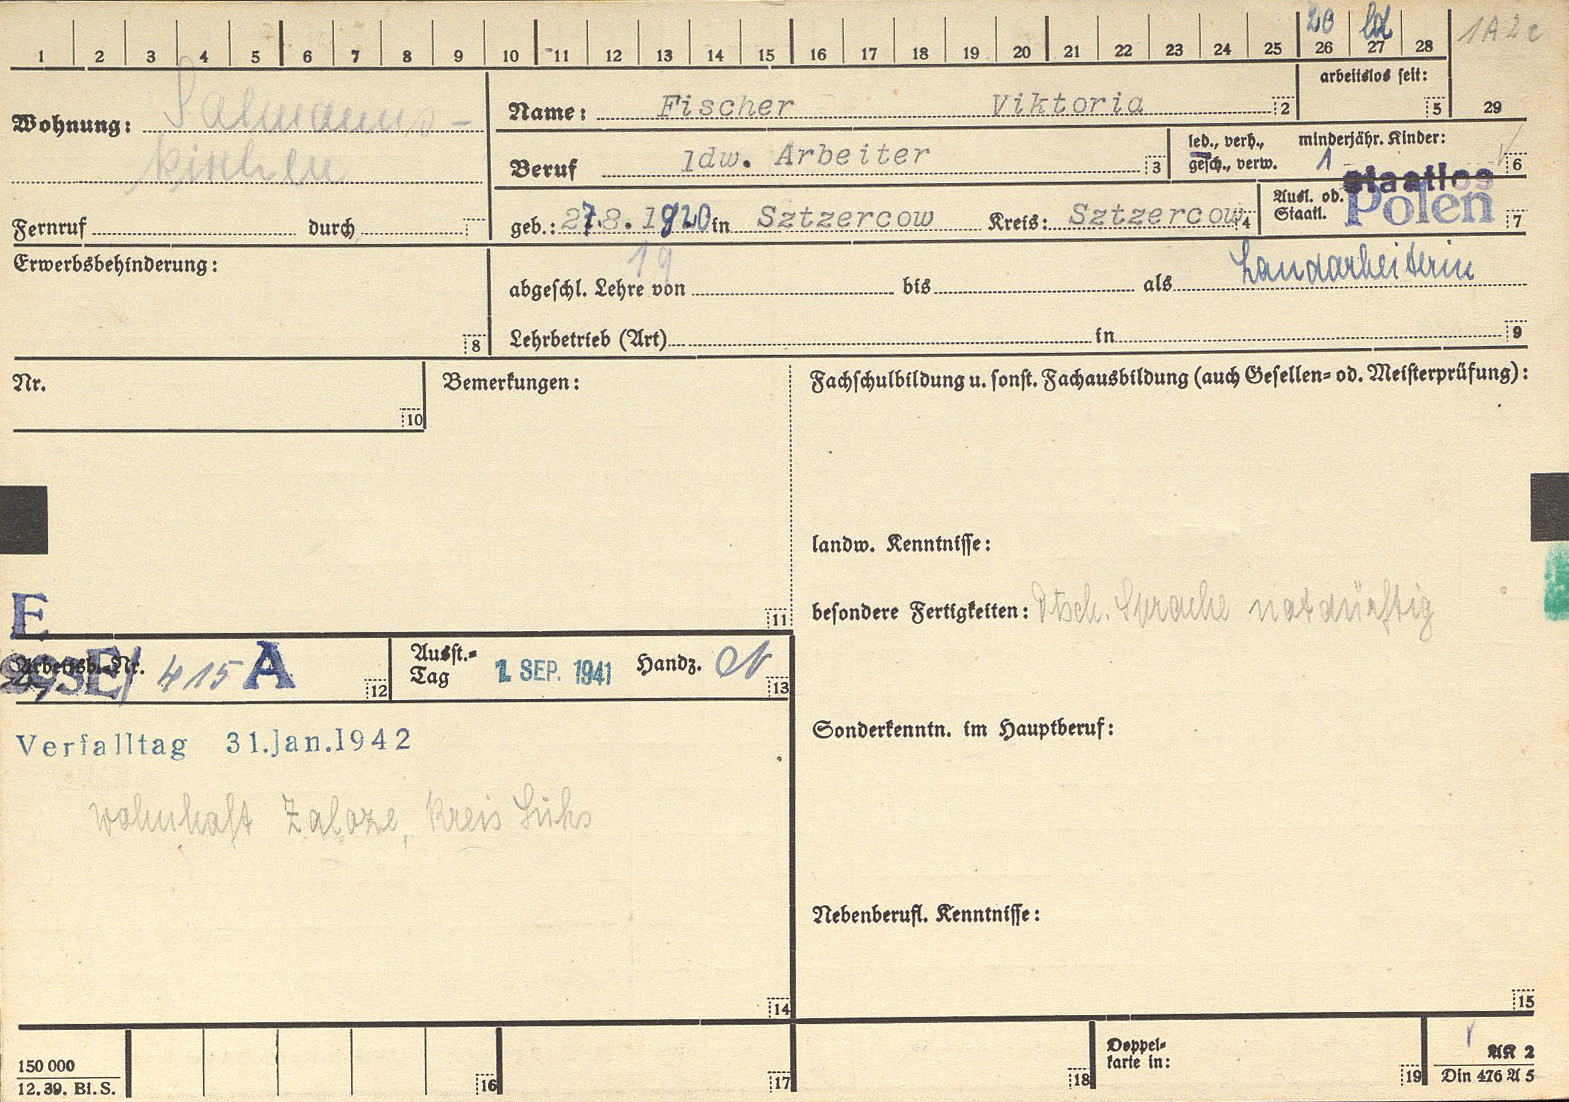 1 2 3 4 5 6 7 8 9 10 11 12 13 14 15 16 17 18 19 20 21 22 23 24 25 26 27 28 29
20
1A2c
arbeitslos seit:
5
Wohnung: Salmanns-
kirchen
Name: Fischer Viktoria 2
Beruf ldw. Arbeiter 3
led., verh., minderjähr. Kinder:
gesch., verw. 1 6
staatlos
Fernruf durch
geb.: 27.8.1920 in Sztzercow Kreis: Sztzercow 4
Ausl. od.
Staatl. Polen 7
19
Erwerbsbehinderung:
8
abgeschl. Lehre von bis als Landarbeiterin
Lehrbetrieb (Art) in 9
Nr.
10
Bemerkungen:
11
Fachschulbildung u. sonst. Fachausbildung (auch Gesellen- od. Meisterprüfung):
landw. Kenntnisse:
besondere Fertigkeiten: Dtsch. Sprache notdürftig
E
Arbeitsb.-Nr. 415 A 12
Ausst.-
Tag 1. SEP. 1941 Handz. 13
Verfalltag 31.Jan.1942
wohnhaft Zaloze, Kreis
14
Sonderkenntn. im Hauptberuf:
Nebenberufl. Kenntnisse:
15
150 000
12. 39. Bl. S.
16
17
18
Doppel-
karte in:
19
AK 2
Din 476 A 5